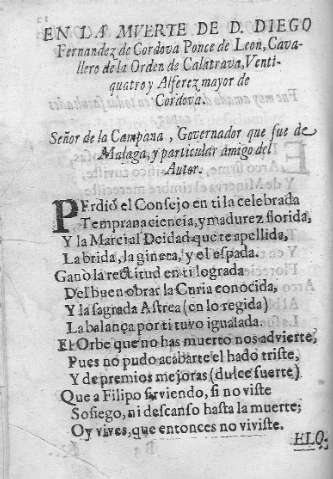 EN LA MVERTE DE D. DIEGO
Fernandez de Cordova Ponce de Leon, Cava-
llero de la Orden de Calatrava, Venti-
quatro y Alferez mayor de
Cordova.
Señor de la Campana, Governador que fue de
Malaga, y particular amigo del
Autor.
PErdiò el Consejo en ti la celebrada
Temprana ciencia, y madurez florida,
Y la Marcial Deidad que te apellida,
La brida, la gineta, y el espada.
Ganò la rectitud en ti lograda
Del buen obrar la Curia conocida,
Y la sagrada Astrea (en lo regido)
La balança por ti tuvo igualada.
El Orbe que no has muerto nos advierte,
Pues no pudo acabarte el hado triste,
Y de premios mejoras (dulce suerte)
Que a Filipo sirviendo, si no viste
Sosiego, ni descanso hasta la muerte;
Oy vives, que entonces no viviste.
ELO-